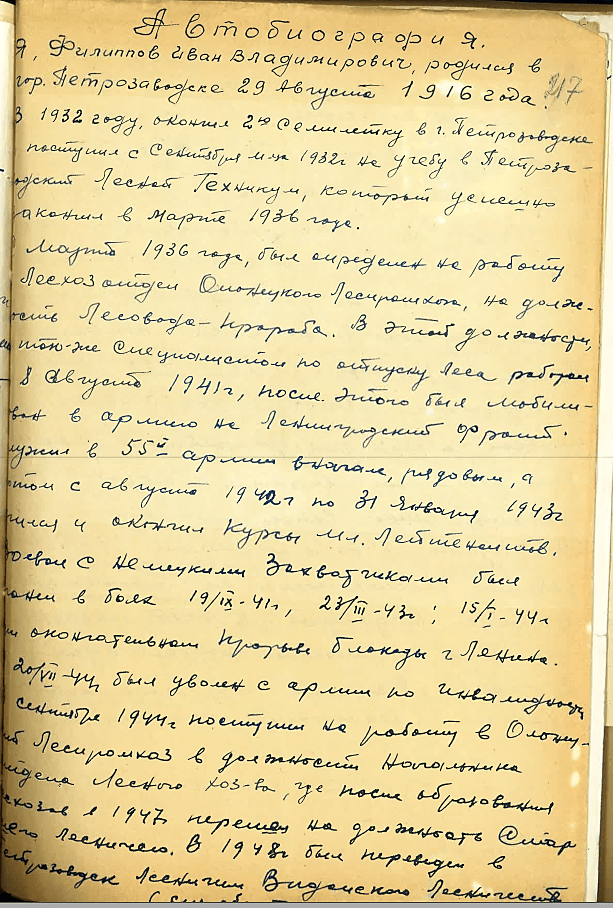 Автобиография.
Я, Филиппов Иван Владимирович, родился в
гор. Петрозаводске 29 Августа 1916 года. 217
В 1932 году, окончил 2ую Семилетку в г. Петрозаводске
поступил с Сентября м-ца 1932г на учебу в Петроза-
водский Лесной Техникум, который успешно
закончил в Марте 1936 года.
Марта 1936 года, был определен на работу
Лесхозотдел Олонецкого Леспромхоза, на долж-
ость Лесовода-Прораба. В этой должности,
так-же специалистом по отпуску леса работал
8 Августа 1941г, после этого был мобили-
ван в армию на Ленинградский фронт.
лужил в 55й армии вначале, рядовым, а
отом с августа 1942г по 31 Января 1943г
чился и окончил курсы мл. Лейтенантов.
оевал с немецкими Захватчиками был
ранен в боях 19/IX-41г, 23/III-43г; 15/I-44г
ри окончательном прорыве блокады г Ленина.
20/VII-44г был уволен с армии по инвалидности
сентябре 1944г поступил на работу в Олонец-
ий Леспромхоз в должности Начальника
отдела Лесного хоз-ва, где после образования
есхозов в 1947г перешел на должность Стар
шего Лесничего. В 1948г был переведен в
етрозаводск Лесничим Виданского Лесничества